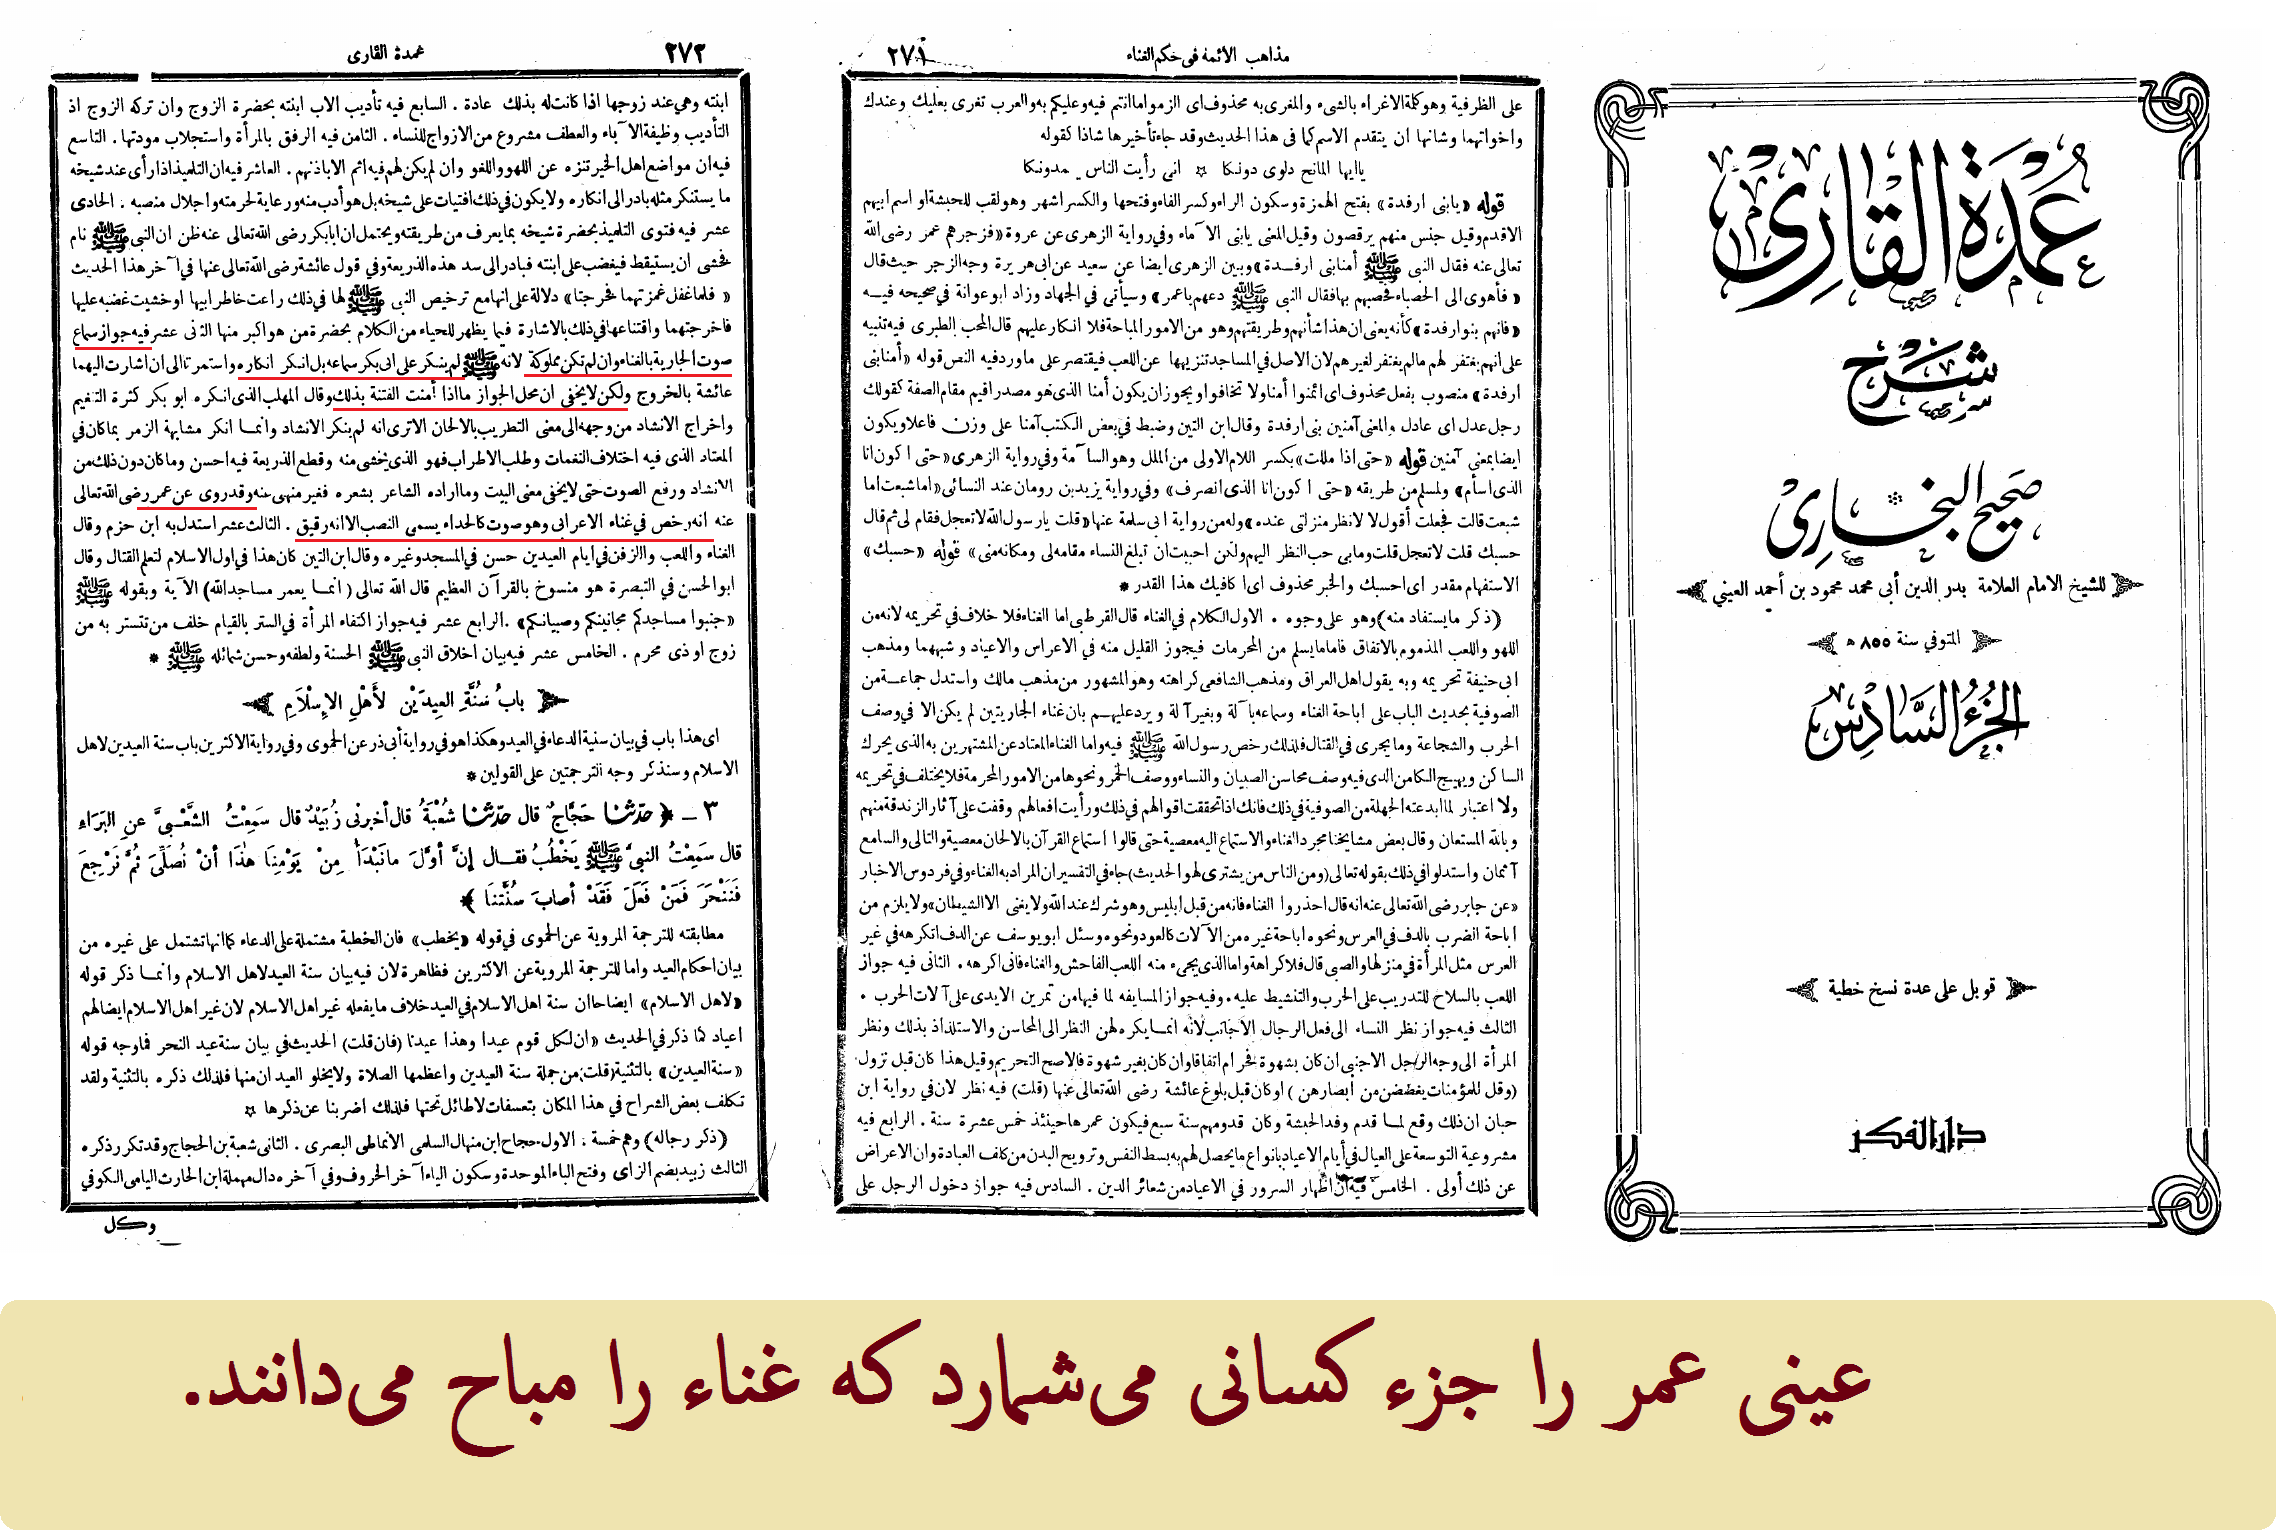 عُمْدَةُ القَارِئ
شَرْحُ
صَحِيحِ البُخَارِي
للشيخ الامام العلامة بدر الدين أبي محمد محمود بن أحمد العيني
المتوفي سنة ٨٥٥ ه
الجُزْءُ السَّادِسُ
قوبل على عدة نسخ خطية
دار الفكر
مذاهب الأئمة فى حكم الغناء ٢٧١
على الظرفية وهو كلمة الاغراء بالشىء والمغرى به محذوف اى الزموا ما انتم فيه وعليكم به والعرب تغرى بعليك وعندك
واخواتهما وشانها ان يتقدم الاسم كما فى هذا الحديث وقد جاء تأخيرها شاذا كقوله
يا ايها المانح دلوى دونكا ☆ انى رأيت الناس يمدونكا
قوله «يا بنى ارفدة» بفتح الهمزة وسكون الراء وكسر الفاء وفتحها والكسر اشهر وهو لقب للحبشة او اسم ابيهم
الاقدم وقيل جنس منهم يرقصون وقيل المعنى يا بنى الآماء وفي رواية الزهرى عن عروة «فزجرهم عمر رضى الله
تعالى عنه فقال النبي ﷺ أمنا بنى ارفدة» وبين الزهرى ايضا عن سعيد عن ابى هريرة وجه الزجر حيث قال
«فأهوى الى الحصباء فحصبهم بها فقال النبي ﷺ دعهم يا عمر» وسيأتى في الجهاد وزاد ابو عوانة في صحيحه فيه
«فانهم بنو ارفدة» كأنه يعنى ان هذا شأنهم وطريقتهم وهو من الامور المباحة فلا انكار عليهم قال المحب الطبرى فيه تنبيه
على انهم يغتفر لهم مالم يغتفر لغيرهم لان الاصل في المساجد تنزيهها عن اللعب فيقتصر على ما ورد فيه النص قوله «أمنا بنى
ارفدة» منصوب بفعل محذوف اى ائمنوا أمنا ولا تخافوا ويجوز ان يكون أمنا الذى هو مصدر اقيم مقام الصفة كقولك
رجل عدل اى عادل والمعنى آمنين بنى ارفدة وقال ابن التين وضبط في بعض الكتب آمنا على وزن فاعلا ويكون
ايضا بمعنى آمنين قوله «حتى اذا مللت» بكسر اللام الاولى من الملل وهو السآمة وفي رواية الزهرى «حتى اكون انا
الذى اسأم» ولمسلم من طريقه «حتى اكون انا الذى انصرف» وفي رواية يزيد بن رومان عند النسائى «اما شبعت اما
شبعت قالت فجعلت أقول لا لانظر منزلتى عنده» وله من رواية ابى سلمة عنها «قلت يا رسول الله لا تعجل فقام لى ثم قال
حسبك قلت لا تعجل قلت وما بى حب النظر اليهم ولكن احببت ان تبلغ النساء مقامه لى ومكانه منى» قوله «حسبك»
الاستفهام مقدر اى احسبك والخبر محذوف اى ا كافيك هذا القدر *
(ذكر ما يستفاد منه) وهو على وجوه . الاول الكلام في الغناء قال القرطبى اما الغناء فلا خلاف في تحريمه لانه من
اللهو واللعب المذموم بالاتفاق فاما ما يسلم من المحرمات فيجوز القليل منه في الاعراس والاعياد وشبههما ومذهب
ابى حنيفة تحريمه وبه يقول اهل العراق ومذهب الشافعى كراهته وهو المشهور من مذهب مالك واستدل جماعة من
الصوفية بحديث الباب على اباحة الغناء وسماعه بآلة وبغير آلة ويرد عليهم بان غناء الجاريتين لم يكن الا في وصف
الحرب والشجاعة وما يجرى في القتال فلذلك رخص رسول الله ﷺ فيه واما الغناء المعتاد عن المشتهرين به الذى يحرك
الساكن ويهيج الكامن الذى فيه وصف محاسن الصبيان والنساء ووصف الخمر ونحوها من الامور المحرمة فلا يختلف في تحريمه
ولا اعتبار لما ابدعته الجهلة من الصوفية في ذلك فانك اذا تحققت اقوالهم في ذلك ورأيت افعالهم وقفت على آثار الزندقة منهم
وبالله المستعان وقال بعض مشايخنا مجرد الغناء والاستماع اليه معصية حتى قالوا استماع القرآن بالالحان معصية والتالى والسامع
آثمان واستدلوا في ذلك بقوله تعالى (ومن الناس من يشترى لهو الحديث) جاء في التفسير ان المراد به الغناء وفي فردوس الاخبار
«عن جابر رضى الله تعالى عنه انه قال احذروا الغناء فانه من قبل ابليس وهو شرك عند الله ولا يغنى الا الشيطان» ولا يلزم من
اباحة الضرب بالدف في العرس ونحوه اباحة غيره من الآلات كالعود ونحوه وسئل ابو يوسف عن الدف اتكرهه في غير
العرس مثل المرأة في منزلها والصبى قال فلا كراهة واما الذى يجىء منه اللعب الفاحش والغناء فانى اكرهه . الثانى فيه جواز
اللعب بالسلاح للتدريب على الحرب والتنشيط عليه . وفيه جواز المسايفة لما فيها من تمرين الايدى على آلات الحرب .
الثالث فيه جواز نظر النساء الى فعل الرجال الاجانب لانه انما يكره لهن النظر الى المحاسن والاستلذاذ بذلك ونظر
المرأة الى وجه الرجل الاجنبى ان كان بشهوة فحرام اتفاقا وان كان بغير شهوة فالاصح التحريم وقيل هذا كان قبل نزول
(وقل للمؤمنات يغضضن من ابصارهن) او كان قبل بلوغ عائشة رضى الله تعالى عنها (قلت) فيه نظر لان في رواية ابن
حبان ان ذلك وقع لما قدم وفد الحبشة وكان قدومهم سنة سبع فيكون عمرها حينئذ خمس عشرة سنة . الرابع فيه
مشروعية التوسعة على العيال في أيام الاعياد بانواع ما يحصل لهم به بسط النفس وترويح البدن من كلف العبادة وان الاعراض
عن ذلك أولى . الخامس فيه ان اظهار السرور في الاعياد من شعائر الدين . السادس فيه جواز دخول الرجل على
٢٧٢ عمدة القارى
ابنته وهي عند زوجها اذا كانت له بذلك عادة . السابع فيه تأديب الاب ابنته بحضرة الزوج وان تركه الزوج اذ
التأديب وظيفة الآباء والعطف مشروع من الازواج للنساء . الثامن فيه الرفق بالمرأة واستجلاب مودتها . التاسع
فيه ان مواضع اهل الخير تنزه عن اللهو واللغو وان لم يكن لهم فيه اثم الا باذنهم . العاشر فيه ان التلميذ اذا رأى عند شيخه
ما يستنكر مثله بادر الى انكاره ولا يكون في ذلك افتيات على شيخه بل هو أدب منه ورعاية لحرمته واجلال منصبه . الحادى
عشر فيه فتوى التلميذ بحضرة شيخه بما يعرف من طريقته ويحتمل ان ابا بكر رضى الله تعالى عنه ظن ان النبى ﷺ نام
فخشى ان يستيقظ فيغضب على ابنته فبادر الى سد هذه الذريعة وفي قول عائشة رضى الله تعالى عنها في آخر هذا الحديث
«فلما غفل غمزتهما فخرجتا» دلالة على انها مع ترخيص النبى ﷺ لها في ذلك راعت خاطر ابيها او خشيت غضبه عليها
فاخرجتهما واقتناعها في ذلك بالاشارة فيما يظهر للحياء من الكلام بحضرة من هو اكبر منها الثانى عشر فيه جواز سماع
صوت الجارية بالغناء وان لم تكن مملوكة لانه ﷺ لم ينكر على ابى بكر سماعه بل انكر انكاره واستمرتا الى ان اشارت اليهما
عائشة بالخروج ولكن لا يخفى ان محل الجواز ما اذا أمنت الفتنة بذلك وقال المهلب الذى انكره ابو بكر كثرة التنغيم
واخراج الانشاد من وجهه الى معنى التطريب بالالحان الا ترى انه لم ينكر الانشاد وانما انكر مشابهة الزمر بما كان في
المعتاد الذى فيه اختلاف النغمات وطلب الاطراب فهو الذى يخشى منه وقطع الذريعة فيه احسن وما كان دون ذلك من
الانشاد ورفع الصوت حتى لا يخفى معنى البيت وما اراده الشاعر بشعره فغير منهى عنه وقد روى عن عمر رضى الله تعالى
عنه انه رخص في غناء الاعرابى وهو صوت كالحداء يسمى النصب الا انه رقيق . الثالث عشر استدل به ابن حزم وقال
الغناء واللعب والزفن في ايام العيدين حسن في المسجد وغيره وقال ابن التين كان هذا في اول الاسلام لتعلم القتال وقال
ابو الحسن في التبصرة هو منسوخ بالقرآن العظيم قال الله تعالى (انما يعمر مساجد الله) الآية وبقوله ﷺ
«جنبوا مساجدكم مجانينكم وصبيانكم» . الرابع عشر فيه جواز اكتفاء المرأة في الستر بالقيام خلف من تتستر به من
زوج او ذى محرم . الخامس عشر فيه بيان اخلاق النبى ﷺ الحسنة ولطفه وحسن شمائله ﷺ *
بابُ سُنَّةِ العِيدَيْنِ لأَهْلِ الإِسْلَامِ
اى هذا باب في بيان سنية الدعاء في العيد وهكذا هو في رواية أبى ذر عن الحموى وفي رواية الاكثرين باب سنة العيدين لاهل
الاسلام وسنذكر وجه الترجمتين على القولين *
٣ ـ ﴿ حدّثنا حَجَّاجٌ قال حدّثنا شُعْبَةُ قال أخبرنى زُبَيْدٌ قال سَمِعْتُ الشَّعْبِىَّ عنِ البَرَاءِ
قال سَمِعْتُ النبىَّ ﷺ يَخْطُبُ فقال إنَّ أوَّلَ مانَبْدَأُ مِنْ يَوْمِنَا هٰذَا أنْ نُصَلِّىَ ثُمَّ نَرْجِعَ
فَنَنْحَرَ فَمَنْ فَعَلَ فَقَدْ أصابَ سُنَّتَنَا ﴾ *
مطابقته للترجمة المروية عن الحموى في قوله «يخطب» فان الخطبة مشتملة على الدعاء كما انها تشتمل على غيره من
بيان احكام العيد واما للترجمة المروية عن الاكثرين فظاهرة لان فيه بيان سنة العيد لاهل الاسلام وانما ذكر قوله
«لاهل الاسلام» ايضاحا ان سنة اهل الاسلام في العيد خلاف ما يفعله غير اهل الاسلام لان غير اهل الاسلام ايضا لهم
اعياد كما ذكر في الحديث «ان لكل قوم عيدا وهذا عيدنا (فان قلت) الحديث في بيان سنة عيد النحر فما وجه قوله
«سنة العيدين» بالتثنية (قلت) من جملة سنة العيدين واعظمها الصلاة ولا يخلو العيدان منها فلذلك ذكره بالتثنية ولقد
تكلف بعض الشراح في هذا المكان بتعسفات لا طائل تحتها فلذلك اضربنا عن ذكرها ☆
(ذكر رجاله) وهم خمسة . الاول حجاج ابن منهال السلمى الانماطى البصرى . الثانى شعبة بن الحجاج وقد تكرر ذكره
الثالث زبيد بضم الزاى وفتح الباء الموحدة وسكون الياء آخر الحروف وفي آخره دال مهملة ابن الحارث اليامى الكوفي
وكل
عینی عمر را جزء کسانی می‌شمارد که غناء را مباح می‌دانند.